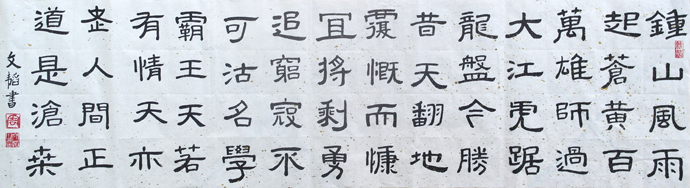 鍾山風雨
起蒼黃百
萬雄師過
大江虎踞
龍盤今勝
昔天翻地
覆慨而慷
宜將剩勇
追窮寇不
可沽名學
霸王天若
有情天亦
老人間正
道是滄桑
文韜書